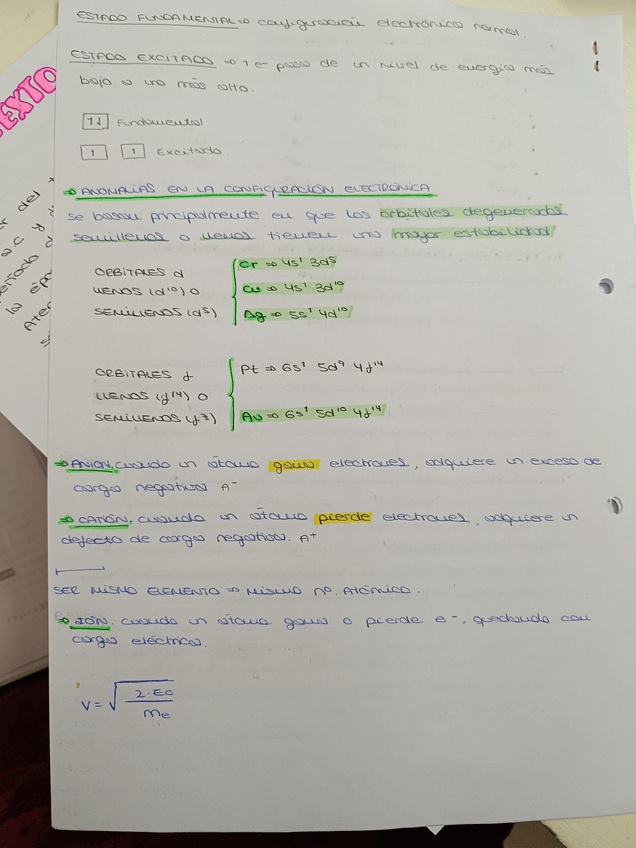 ESTADO FUNDAMENTAL ⇒ configuración electrónica normal.
ESTADO EXCITADO ⇒ 1 e⁻ pasa de un nivel de energía más
bajo a uno más alto.
1↓ Fundamental
1 1 Excitado
⇒ ANOMALÍAS EN LA CONFIGURACIÓN ELECTRÓNICA
se basan principalmente en que los orbitales degenerados
semillenos o llenos tienen una mayor estabilidad
ORBITALES d
LLENOS (d¹⁰) O
SEMILLENOS (d⁵)
Cr ⇒ 4s¹ 3d⁵
Cu ⇒ 4s¹ 3d¹⁰
Ag ⇒ 5s¹ 4d¹⁰
ORBITALES f
LLENOS (f¹⁴) O
SEMILLENOS (f⁷)
Pt ⇒ 6s¹ 5d⁹ 4f¹⁴
Au ⇒ 6s¹ 5d¹⁰ 4f¹⁴
⇒ ANIÓN. cuando un átomo gana electrones, adquiere un exceso de
carga negativa A⁻
⇒ CATIÓN. cuando un átomo pierde electrones, adquiere un
defecto de carga negativa. A⁺
SER MISMO ELEMENTO ⇒ MISMO nº ATÓMICO.
⇒ IÓN. cuando un átomo gana o pierde e⁻, quedando con
carga eléctrica.
V = √(2·Ec / me)
EXTO